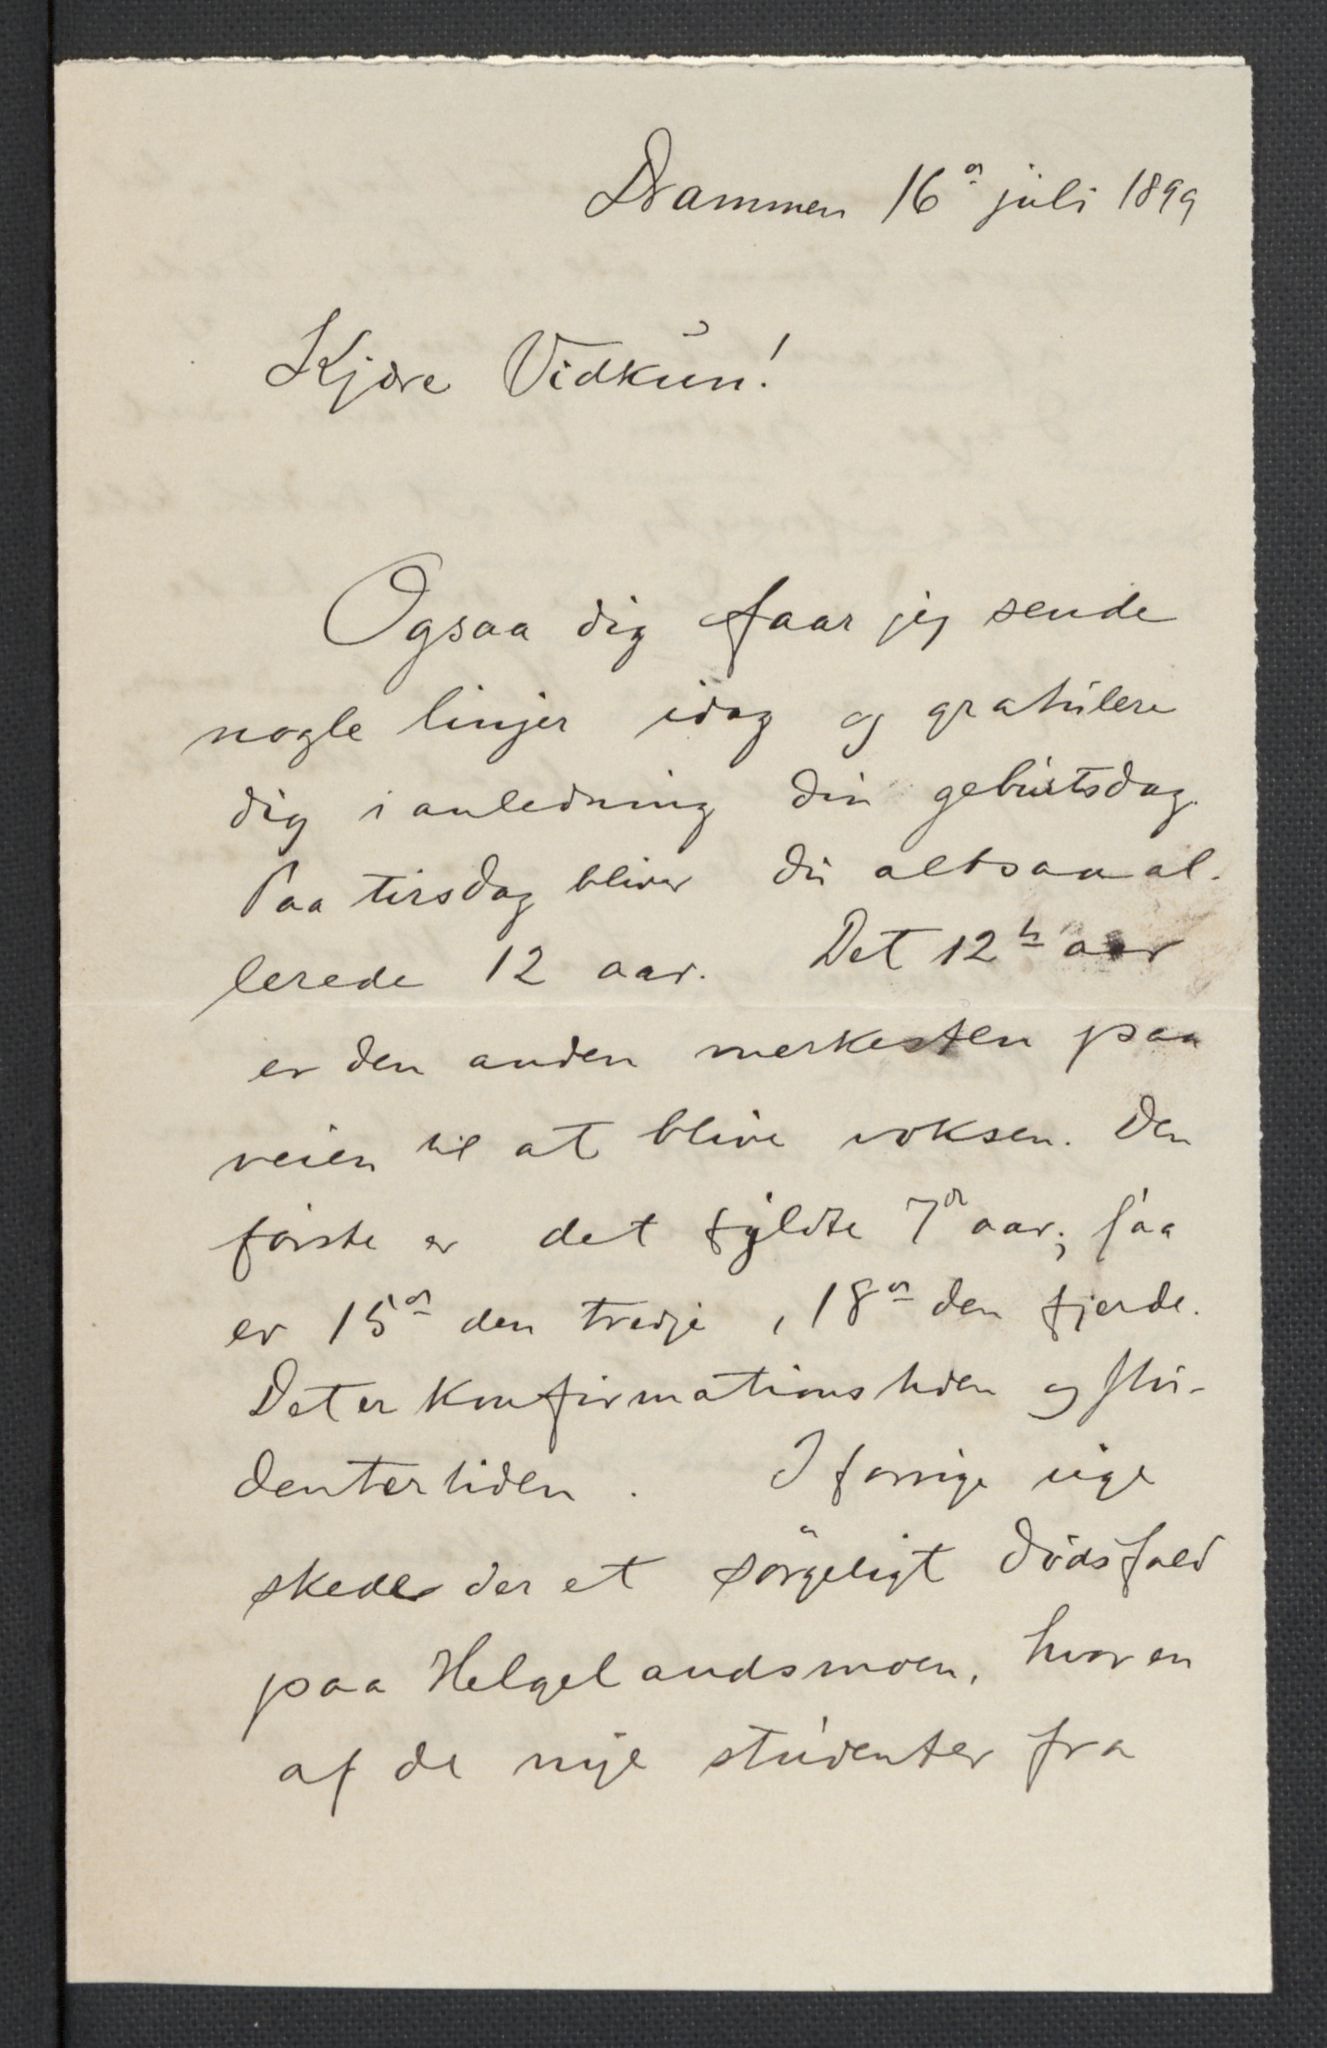 Drammen 16de juli 1899
Kjære Vidkun!
Ogsaa dig faar jeg sende
nogle linjer idag og gratulere
dig i anledning din geburtsdag.
Paa tirsdag bliver du altsaa al-
lerede 12 aar. Det 12te aar
er den anden merkesten paa
veien til at blive voksen. Den
første er det fyldte 7de aar; saa
er 15de den tredje, 18de den fjerde.
Det er konfirmationstiden og stu-
dentertiden. I forrige uge
skede der et sørgeligt dødsfald
paa Helgelandsmoen, hvor en
af de nye studenter fra